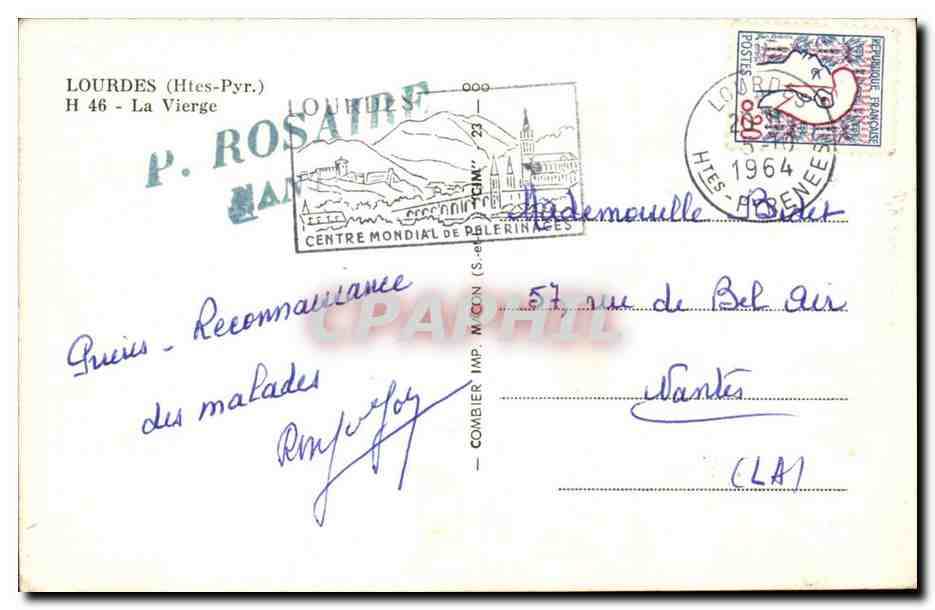 LOURDES (Htes-Pyr.)
H 46 - La Vierge
P. ROSAIRE
LOURDES
CENTRE MONDIAL DE PELERINAGES
Prières - Reconnaissance
des malades
COMBIER IMP. MACON (S.-et-L.) "CIM" 23
RÉPUBLIQUE FRANÇAISE
POSTES
0,20
LOURDES
1964
HTES-PYRENEES
Mademoiselle Bidet
57, rue de Bel Air
Nantes
(LA)
CPAPHIL